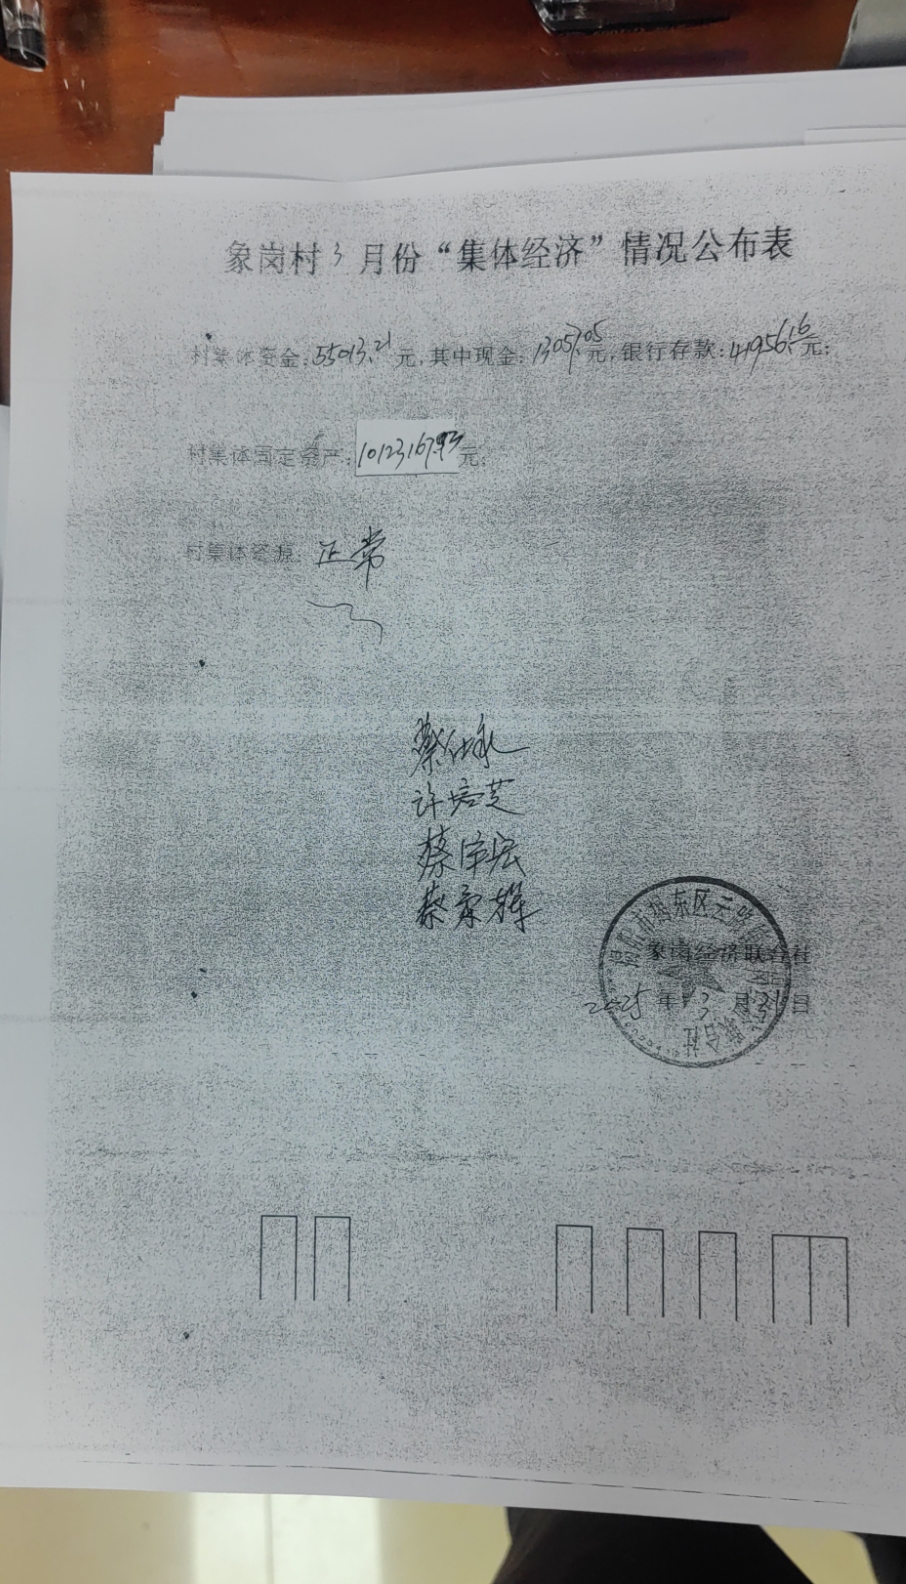 象岗村3月份“集体经济”情况公布表
村集体资金:55013.21元,其中现金:13057.05元,银行存款:41956.16元;
村集体固定资产:10123167.93元;
村集体资源:正常
蔡仕永
许培芝
蔡
蔡
象岗经济联合社
2025年3月31日